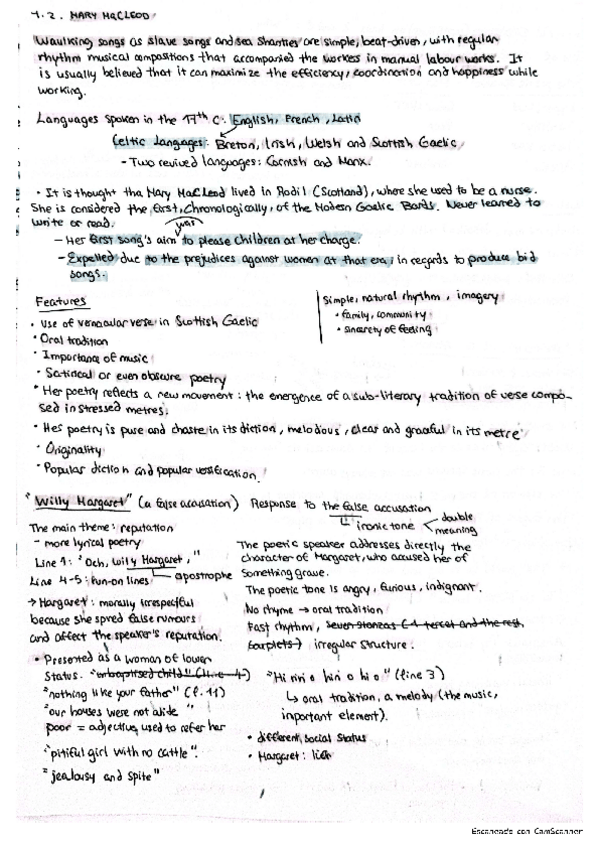 1.2. MARY MACLEOD
Waulking songs as slave songs and sea shanties are simple, beat-driven, with regular
rhythm musical compositions that accompanied the workers in manual labour works. It
is usually believed that it can maximize the efficiency, coordination and happiness while
working.
Languages spoken in the 17th C: English, French, Latin
Celtic languages: Breton, Irish, Welsh and Scottish Gaelic
- Two revived languages: Cornish and Manx.
• It is thought tha Mary MacLeod lived in Rodil (Scotland), where she used to be a nurse.
She is considered the first, chronologically, of the Modern Gaelic Bards. Never learned to
write or read.
was
- Her first song's aim to please children at her charge.
- Expelled due to the prejudices against women at that era, in regards to produce bid
songs.
Features
• Use of vernacular verse in Scottish Gaelic
• Oral tradition
• Importance of music
• Satirical or even obscure poetry
• Her poetry reflects a new movement: the emergence of a sub-literary tradition of verse compo-
sed in stressed metres.
• Her poetry is pure and chaste in its diction, melodious, clear and graceful in its metre
• Originality
• Popular diction and popular versification.
Simple, natural rhythm, imagery
• family, community
• sincerety of feeling
"Willy Margaret" (a false acusation) Response to the false accusation
ironic tone
double
meaning
The main theme: reputation
- more lyrical poetry
Line 1: "Och, wily Margaret,"
Line 4-5: run-on lines
apostrophe
→ Margaret: morally irrespectful
because she spred false rumours
and affect the speaker's reputation.
• Presented as a woman of lower
status. "unbaptised child" (line 4)
"nothing like your father" (l. 11)
"our houses were not alide"
poor = adjective, used to refer her
"pitiful girl with no cattle".
"jealousy and spite"
The poetic speaker addresses directly the
character of Margaret, who accused her of
something grave.
The poetic tone is angry, furious, indignant.
No rhyme → oral tradition
Fast rhythm, seven stanzas (1 tercet and the rest
couplets) irregular structure.
"Hi riri o hiri o hi o" (line 3)
↳ oral tradition, a melody (the music,
inportant element).
• different social status
• Margaret: lich
Escaneado con CamScanner